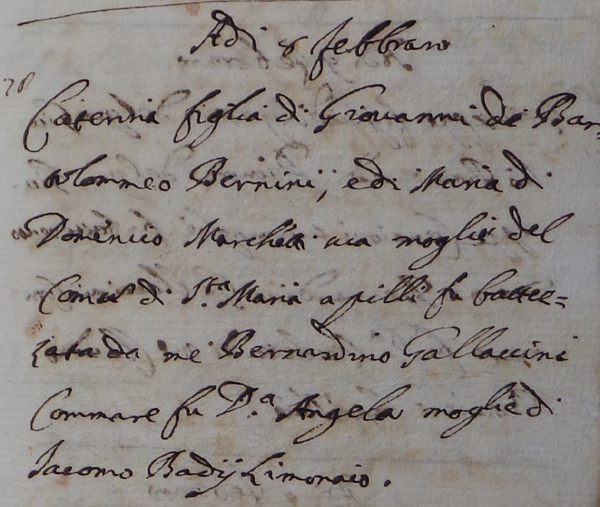 Adi 8 febbraro
28
Caterina figlia di Giovanni di Bar=
tolommeo Bernini, e di Maria di
Domenico Marchetti sua moglie del
Comun.e di S.ta Maria a pilli fu battez=
zata da me Bernardino Gallaccini
Commare fu D.a Angela moglie di
Iacomo Badij Limonaio.